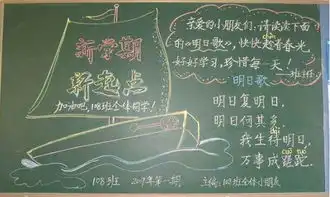 新学期
新起点
加油吧,108班全体同学!
亲爱的小朋友们:请读读下面
的《明日歌》,快快趁着春光,
好好学习,珍惜每一天!
——班主任
明日歌
明日复明日,
明日何其多,
我生待明日,
万事成蹉跎。
108班 2019年第一期 主编:108班全体小朋友